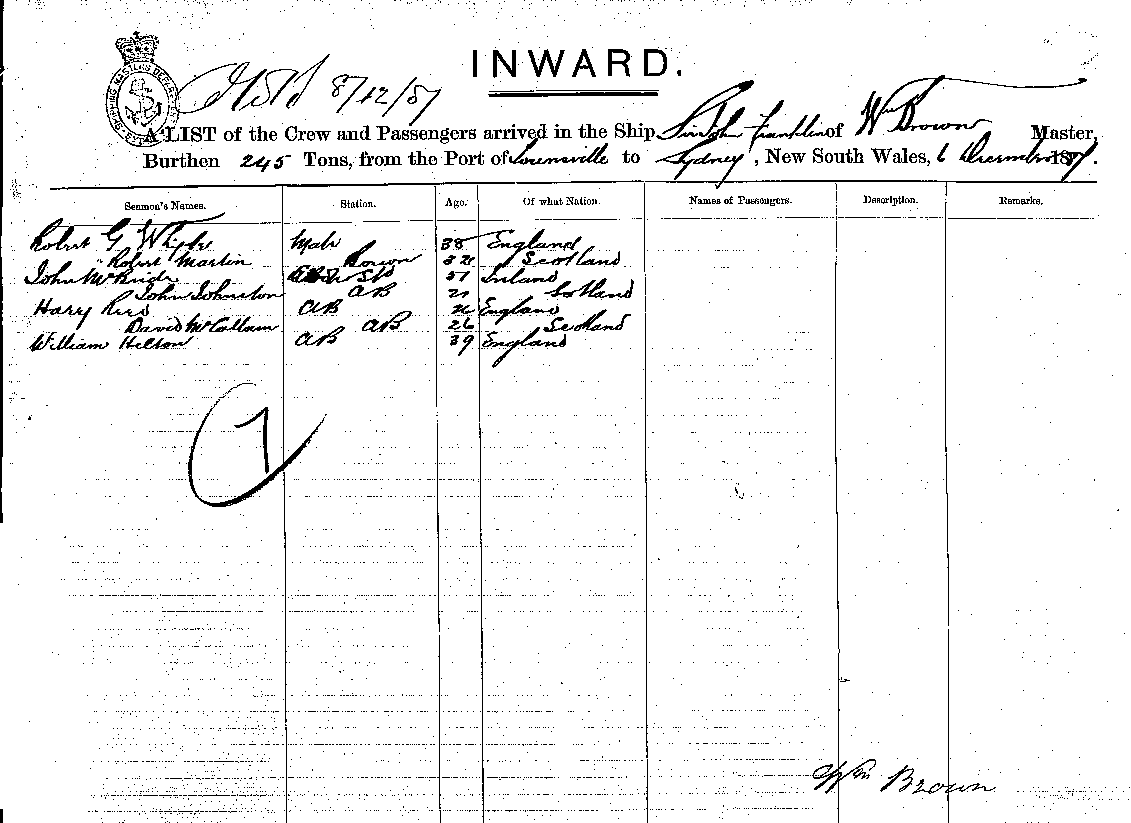 SHIPPING MASTERS DEPARTMENT
INWARD.
8/12/87
A LIST of the Crew and Passengers arrived in the Ship Sir John Franklin of Wm Brown Master,
Burthen 245 Tons, from the Port of Townsville to Sydney, New South Wales, 6 December 1887.
Seamen's Names. Station. Age. Of what Nation. Names of Passengers. Description. Remarks.
Robert G Mate 38 England
Robert Martin Bosun Scotland
John McBride 51 Ireland
John Johnston AB 21 Scotland
Harry AB 26 England
David McCallum AB 26 Scotland
William Helton AB 39 England
7
Wm Brown